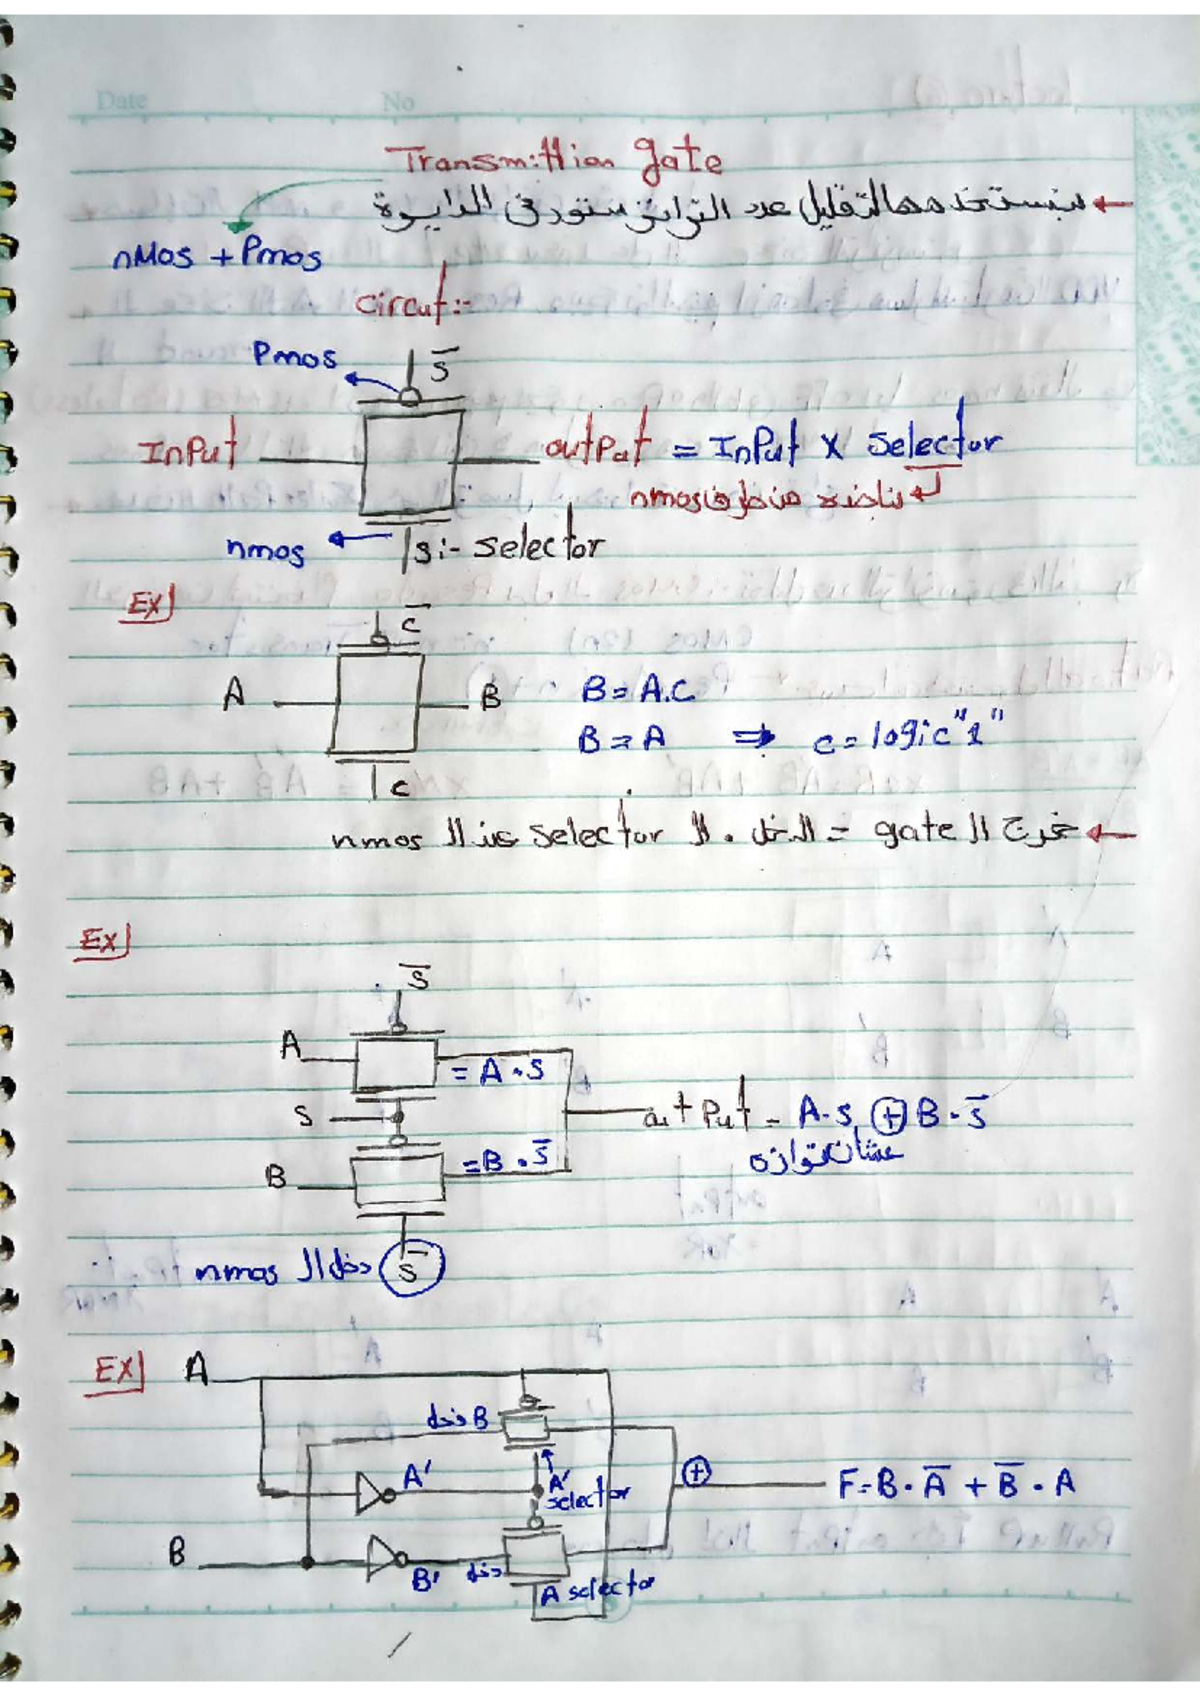 Date No
Transmittion gate
بنستخدمها لتقليل عدد الترانزستور في الدايرة
nMos + Pmos
Circut:-
Pmos
S̅
InPut
outPut = InPut X Selector
بناخده من طرف nmos
nmos
S:- Selector
Ex]
C̅
A
B
B = A.C
B = A ⇒ C = logic "1"
C
خرج ال gate = الدخل . ال Selector عند ال nmos
Ex]
S̅
A
= A . S
S
outPut = A.S ⊕ B.S̅
B
= B . S̅
عشان توازي
دخل ال nmos
S̅
EX] A
دخل B
A'
A' selector
⊕
F = B . A̅ + B̅ . A
B
B'
دخل
A selector